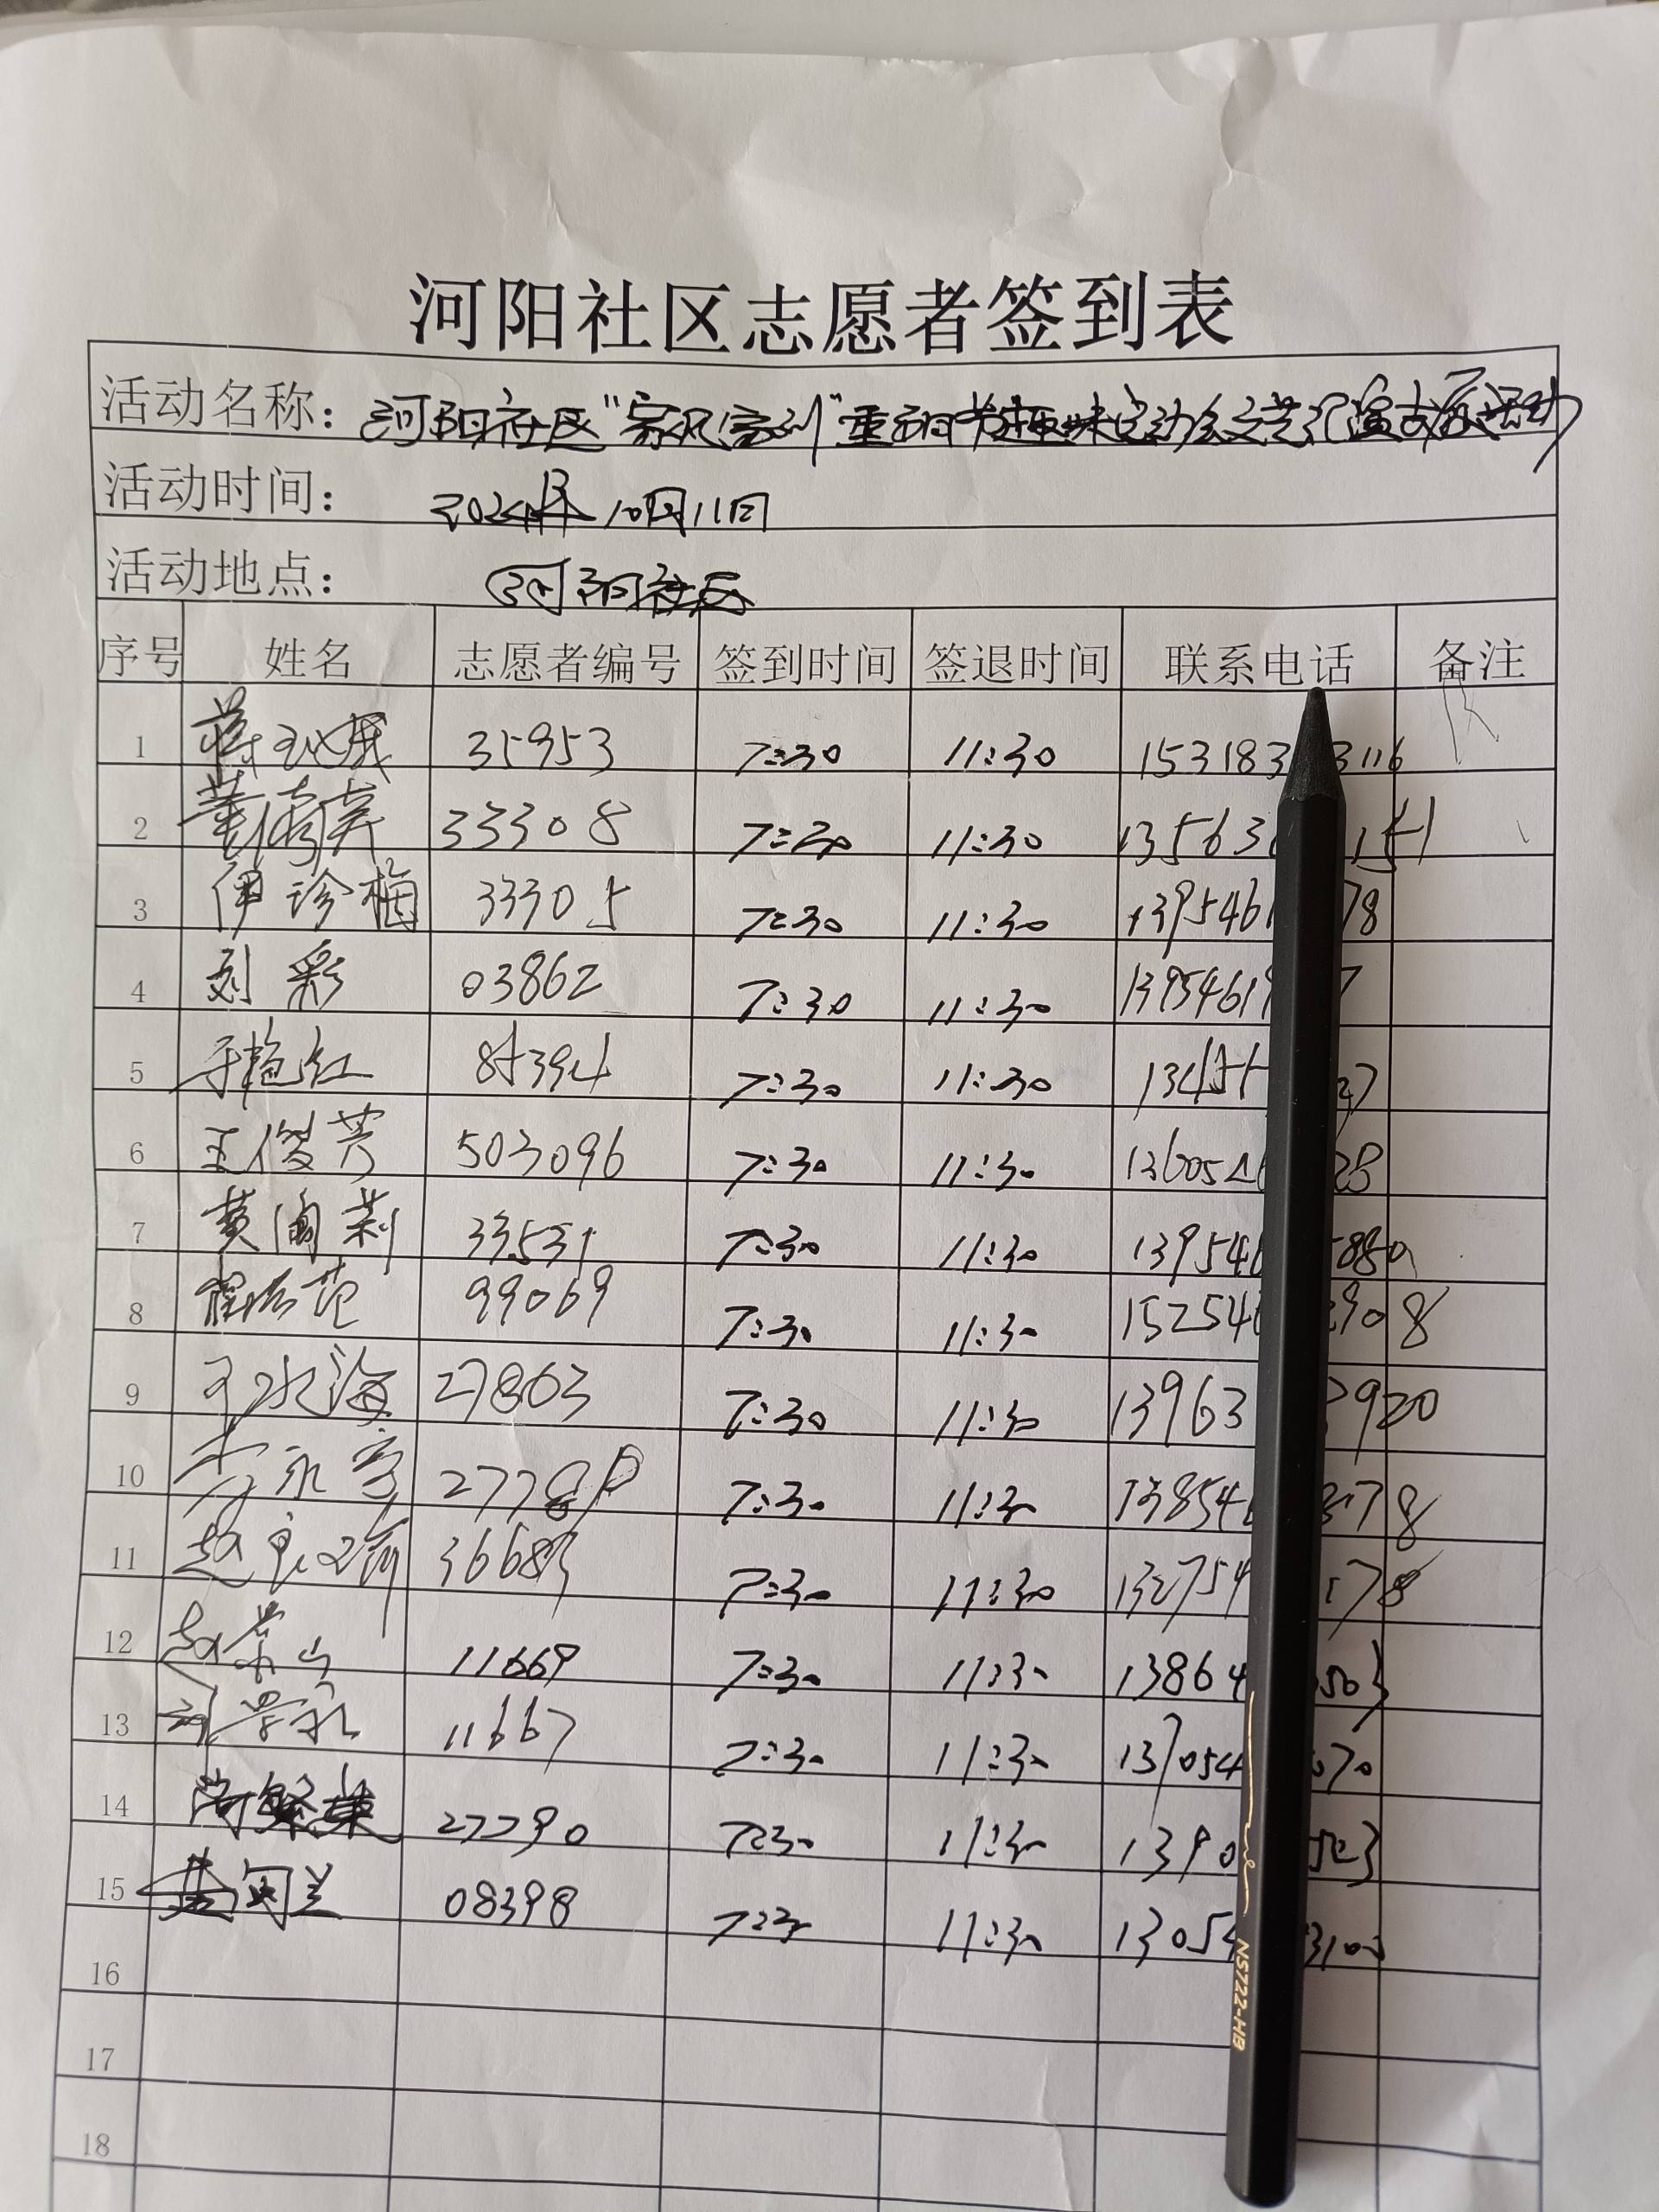 河阳社区志愿者签到表
活动名称：河阳社区"家风家训"重阳节趣味运动会文艺汇演书展活动
活动时间： 2024年10月11日
活动地点： 河阳社区
序号 姓名 志愿者编号 签到时间 签退时间 联系电话 备注
1 35953 7:30 11:30 153183 3116
2 33308 7:30 11:30 13563 151
3 伊珍梅 33305 7:30 11:30 1395461 78
4 刘彩 03862 7:30 11:30 13954619 7
5 于艳红 85394 7:30 11:30 27
6 王俊芳 503096 7:30 11:30 136054 28
7 黄闻莉 33531 7:30 11:30 13954 5880
8 99069 7:30 11:30 15254 2908
9 27863 7:30 11:30 13963 2920
10 7:30 11:30 13854 8
11 赵 36683 7:30 11:30 132754 178
12 赵 11669 7:30 11:30 13864 503
13 刘学 11667 7:30 11:30 137054 070
14 27790 7:30 11:30 1390 523
15 08398 7:30 11:30 13054 3100
16
17
18
NS722-HB